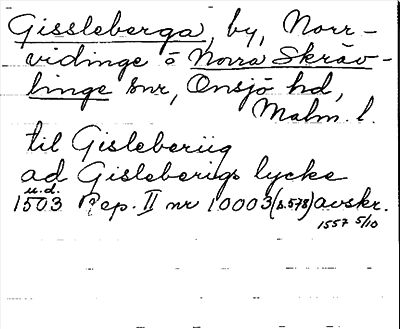 Gissleberga, by, Norr-
vidinge o Norra Skräv-
linge snr, Onsjö hd,
Malm. l.
til Gisleberiig
ad Gisleberigs lycke
u.d.
1503 Rep. II nr 10003 (s. 578) avskr.
1557 5/10